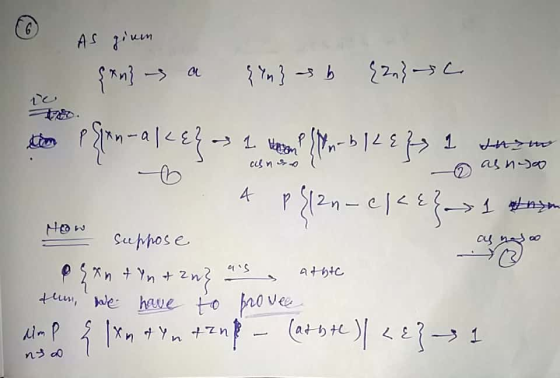 6
As given
{xn} → a {Yn} → b {Zn} → c
i.e
P{|xn - a| < ε} → 1 as n→∞ P{|Yn - b| < ε} → 1 as n→∞
① ②
& P{|Zn - c| < ε} → 1 as n→∞
③
Now suppose
P{xn + Yn + Zn} a.s → a+b+c
then, we have to prove
lim n→∞ P{|xn + Yn + Zn - (a+b+c)| < ε} → 1